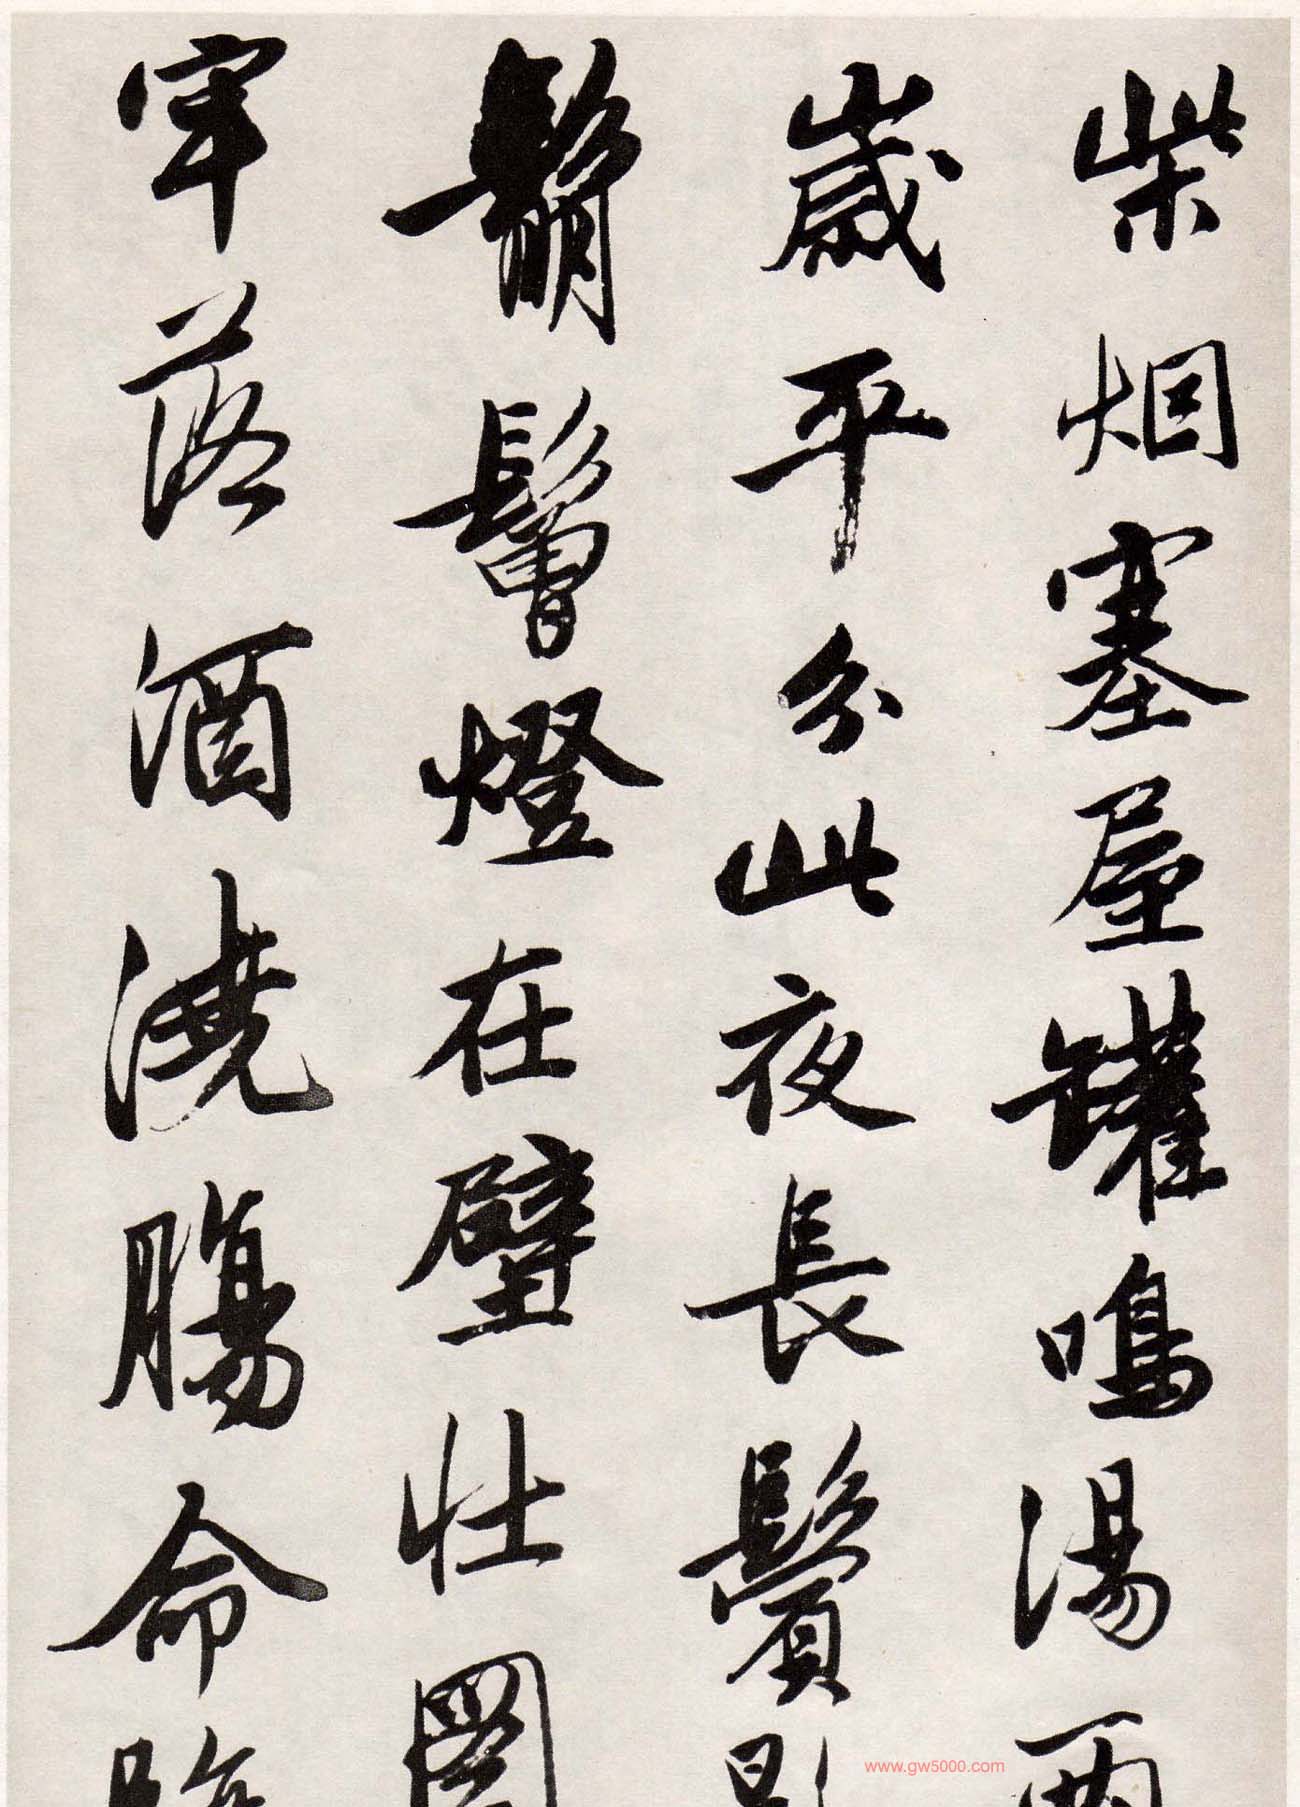 柴烟塞屋罐鳴湯兩
歲平分此夜長鬢影
鬅鬙燈在壁壯圖
牢落酒澆腸命
www.gw5000.com